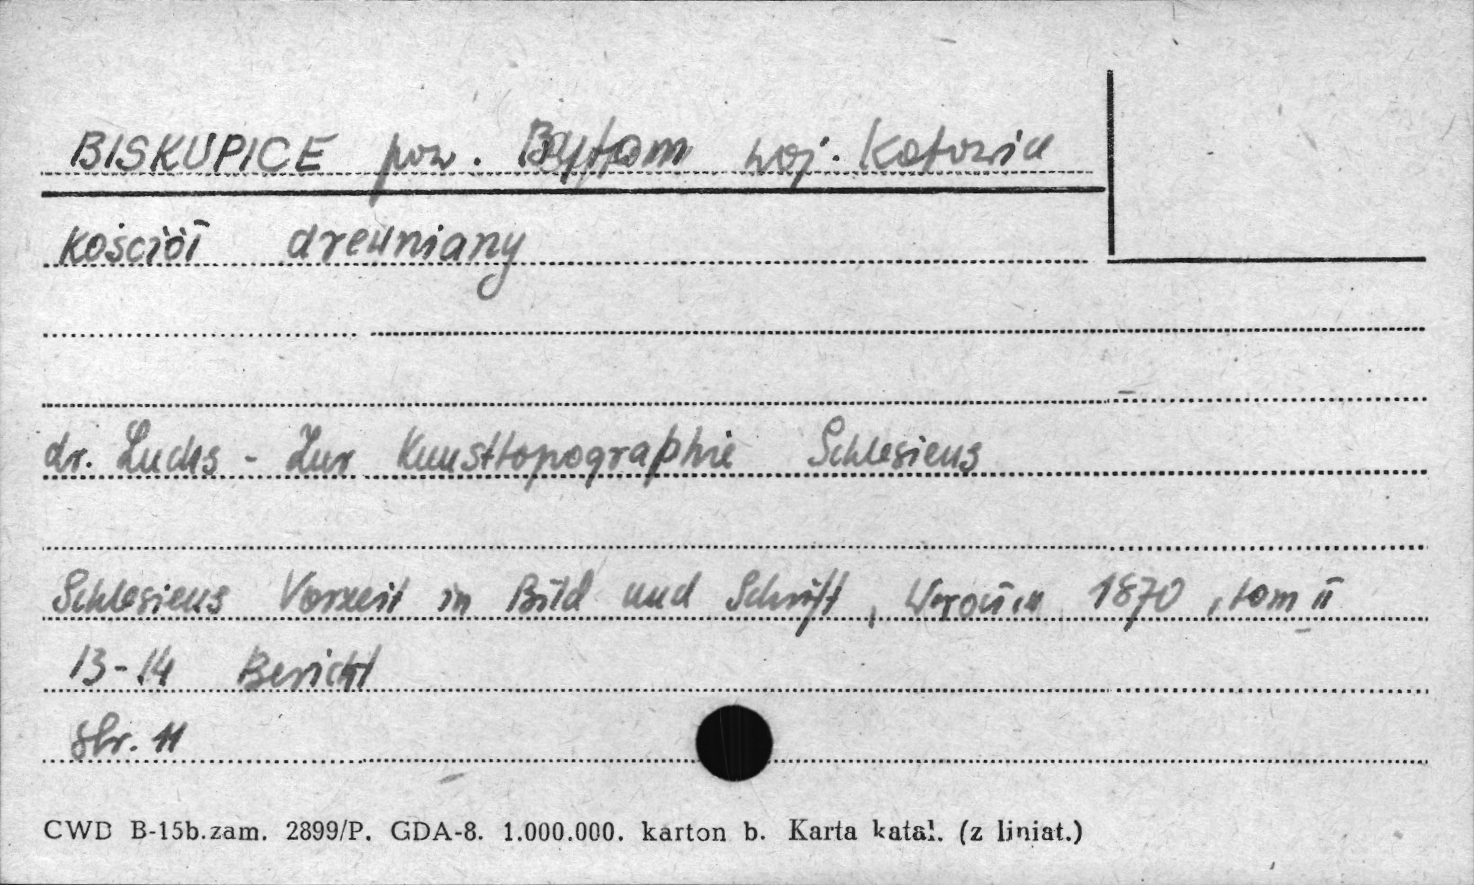 BISKUPICE pow. Bytom woj. Katowice
Kościół drewniany
dr. Luchs - Zur Kunsttopographie Schlesiens
Schlesiens Vorzeit in Bild und Schrift, Wrocław 1870, tom II
13-14 Bericht
Str. 11
CWD B-15b.zam. 2899/P. GDA-8. 1.000.000. karton b. Karta katal. (z liniat.)